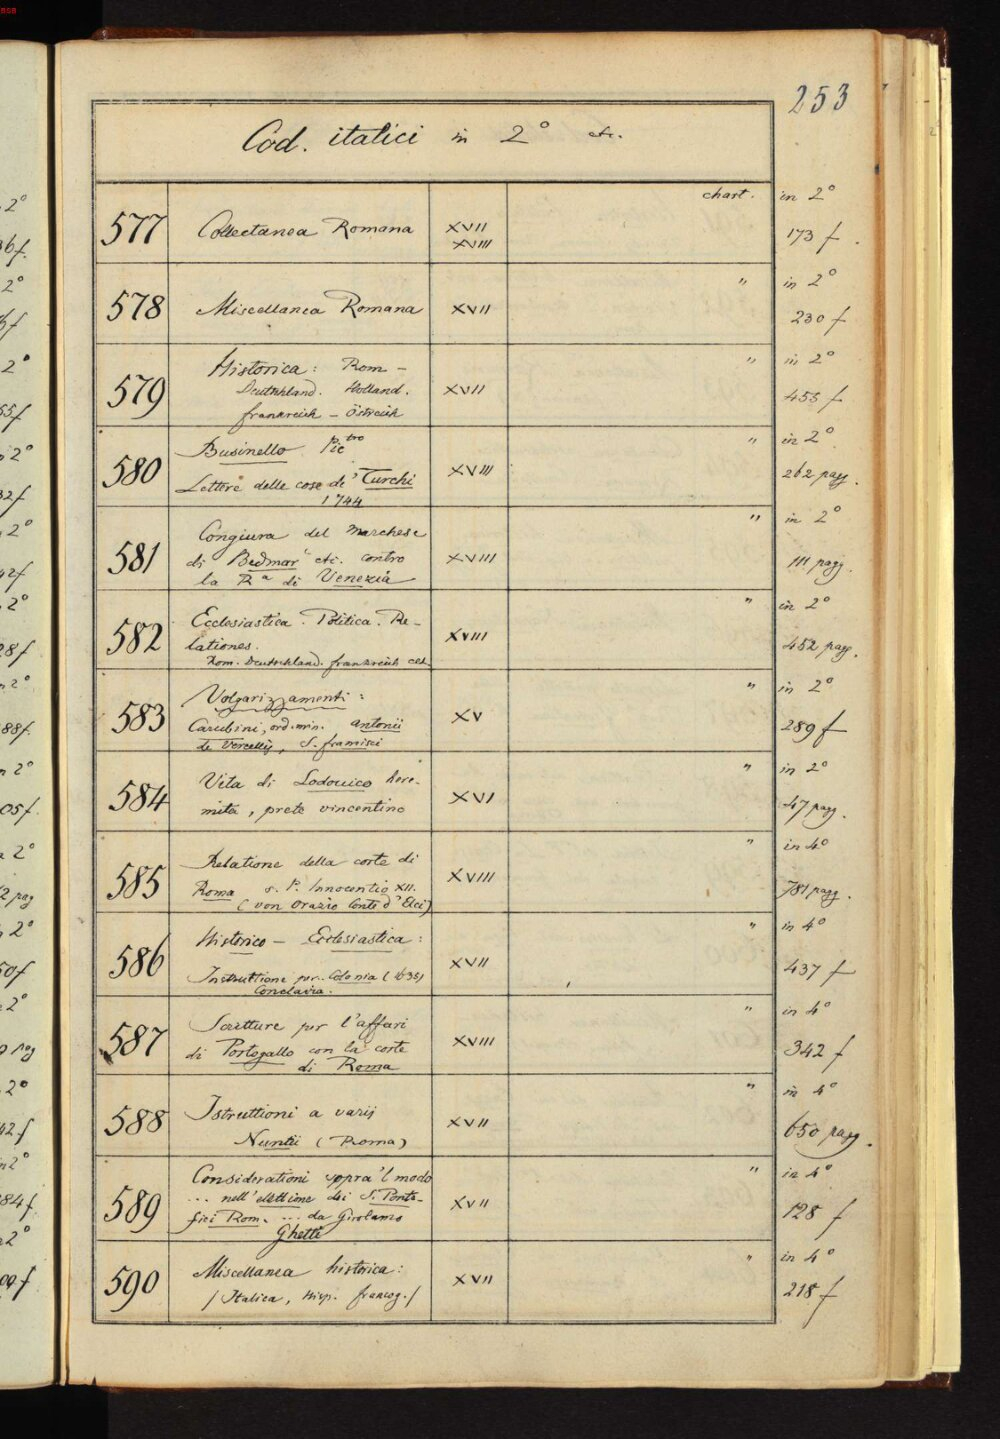 253
Cod. italici in 2° etc.
577 Collectanea Romana XVII XVIII chart. in 2° 173 f.
578 Miscellanea Romana XVII " in 2° 230 f
579 Historica: Rom –
Deutschland. Holland.
Frankreich – Östreich
XVII " in 2° 455 f
580 Businello Pietro
Lettere delle cose de' Turchi
1744
XVIII " in 2° 262 pagg.
581 Congiura del Marchese
di Bedmar etc. contro
la Ra di Venezia
XVIII " in 2° 111 pagg.
582 Ecclesiastica. Politica. Re-
lationes.
Rom. Deutschland. Frankreich cet.
XVIII " in 2° 452 pagg.
583 Volgarizzamenti:
Carubini, ord. min. Antonii
de Vercellis, S. Francisci
XV " in 2° 289 f
584 Vita di Lodouico here-
mita, prete vincentino
XVI " in 2° 47 pagg.
585 Relatione della corte di
Roma s. P. Innocentio XII.
(von Orazio Conte d'Elci)
XVIII " in 4° 781 pagg.
586 Historico – Ecclesiastica:
Instruttione per Colonia (1635)
Conclavia.
XVII " in 4° 437 f
587 Scritture per l'affari
di Portogallo con la corte
di Roma
XVIII " in 4° 342 f
588 Istruttioni a varij
Nuntii (Roma)
XVII " in 4° 650 pagg.
589 Considerationi sopra 'l modo
... nell' elettione dei S. Ponte-
fici Rom. ... da Girolamo
Ghetti
XVII " in 4° 128 f
590 Miscellanea historica:
/ Italica, Hisp. francog. /
XVII " in 4° 218 f